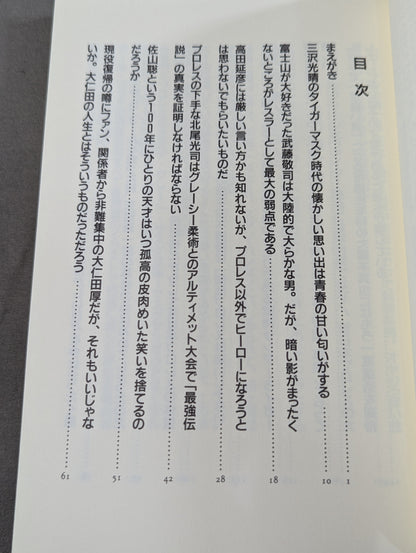 目次
まえがき……1
三沢光晴のタイガーマスク時代の懐かしい思い出は青春の甘い匂いがする……10
富士山が大好きだった武藤敬司は大陸的で大らかな男。だが、暗い影がまったく
ないところがレスラーとして最大の弱点である……18
高田延彦には厳しい言い方かも知れないが、プロレス以外でヒーローになろうと
は思わないでもらいたいものだ……28
プロレスの下手な北尾光司はグレーシー柔術とのアルティメット大会で「最強伝
説」の真実を証明しなければならない……42
佐山聡という一〇〇年にひとりの天才はいつ孤高の皮肉めいた笑いを捨てるの
だろうか……51
現役復帰の噂にファン、関係者から非難集中の大仁田厚だが、それもいいじゃな
いか。大仁田の人生とはそういうものだっただろう……61